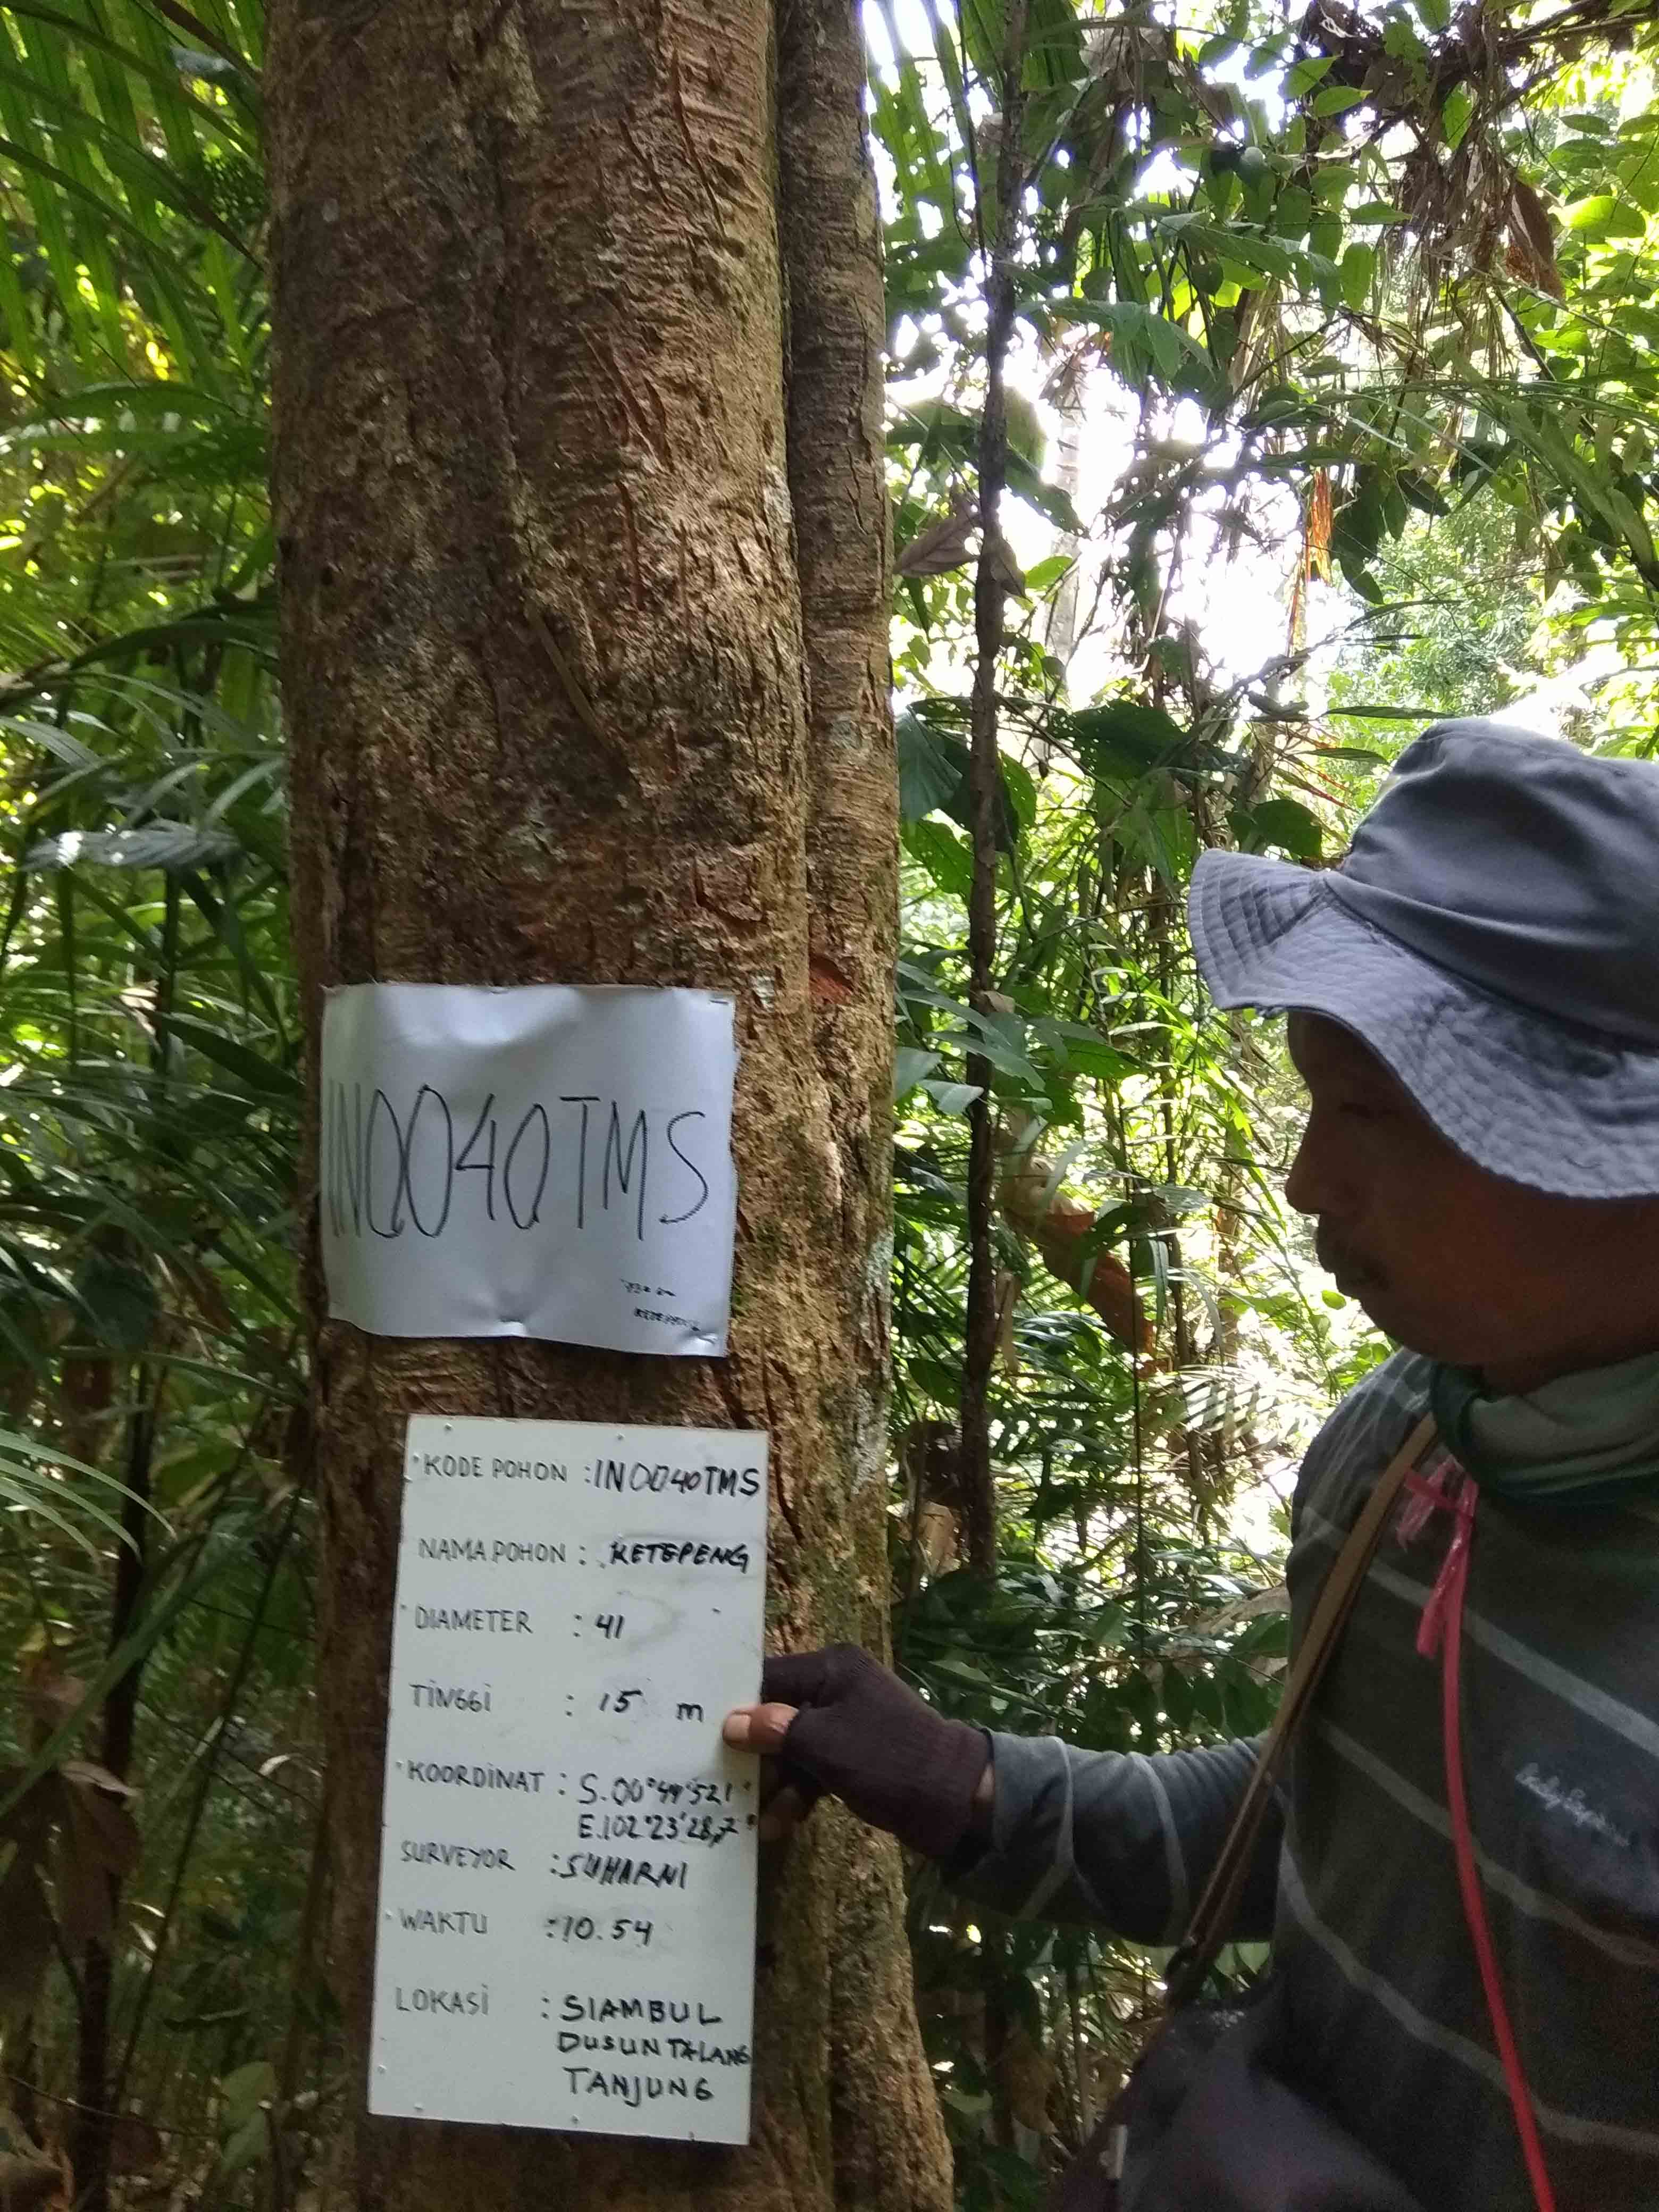 IN0040TMS
KETEPENG
KODE POHON : IN0040TMS
NAMA POHON : KETEPENG
DIAMETER : 41
TINGGI : 15 m
KOORDINAT : S.00°44'52,1"
E.102°23'28,7"
SURVEYOR : SUHARNI
WAKTU : 10.54
LOKASI : SIAMBUL
DUSUN TALANG
TANJUNG